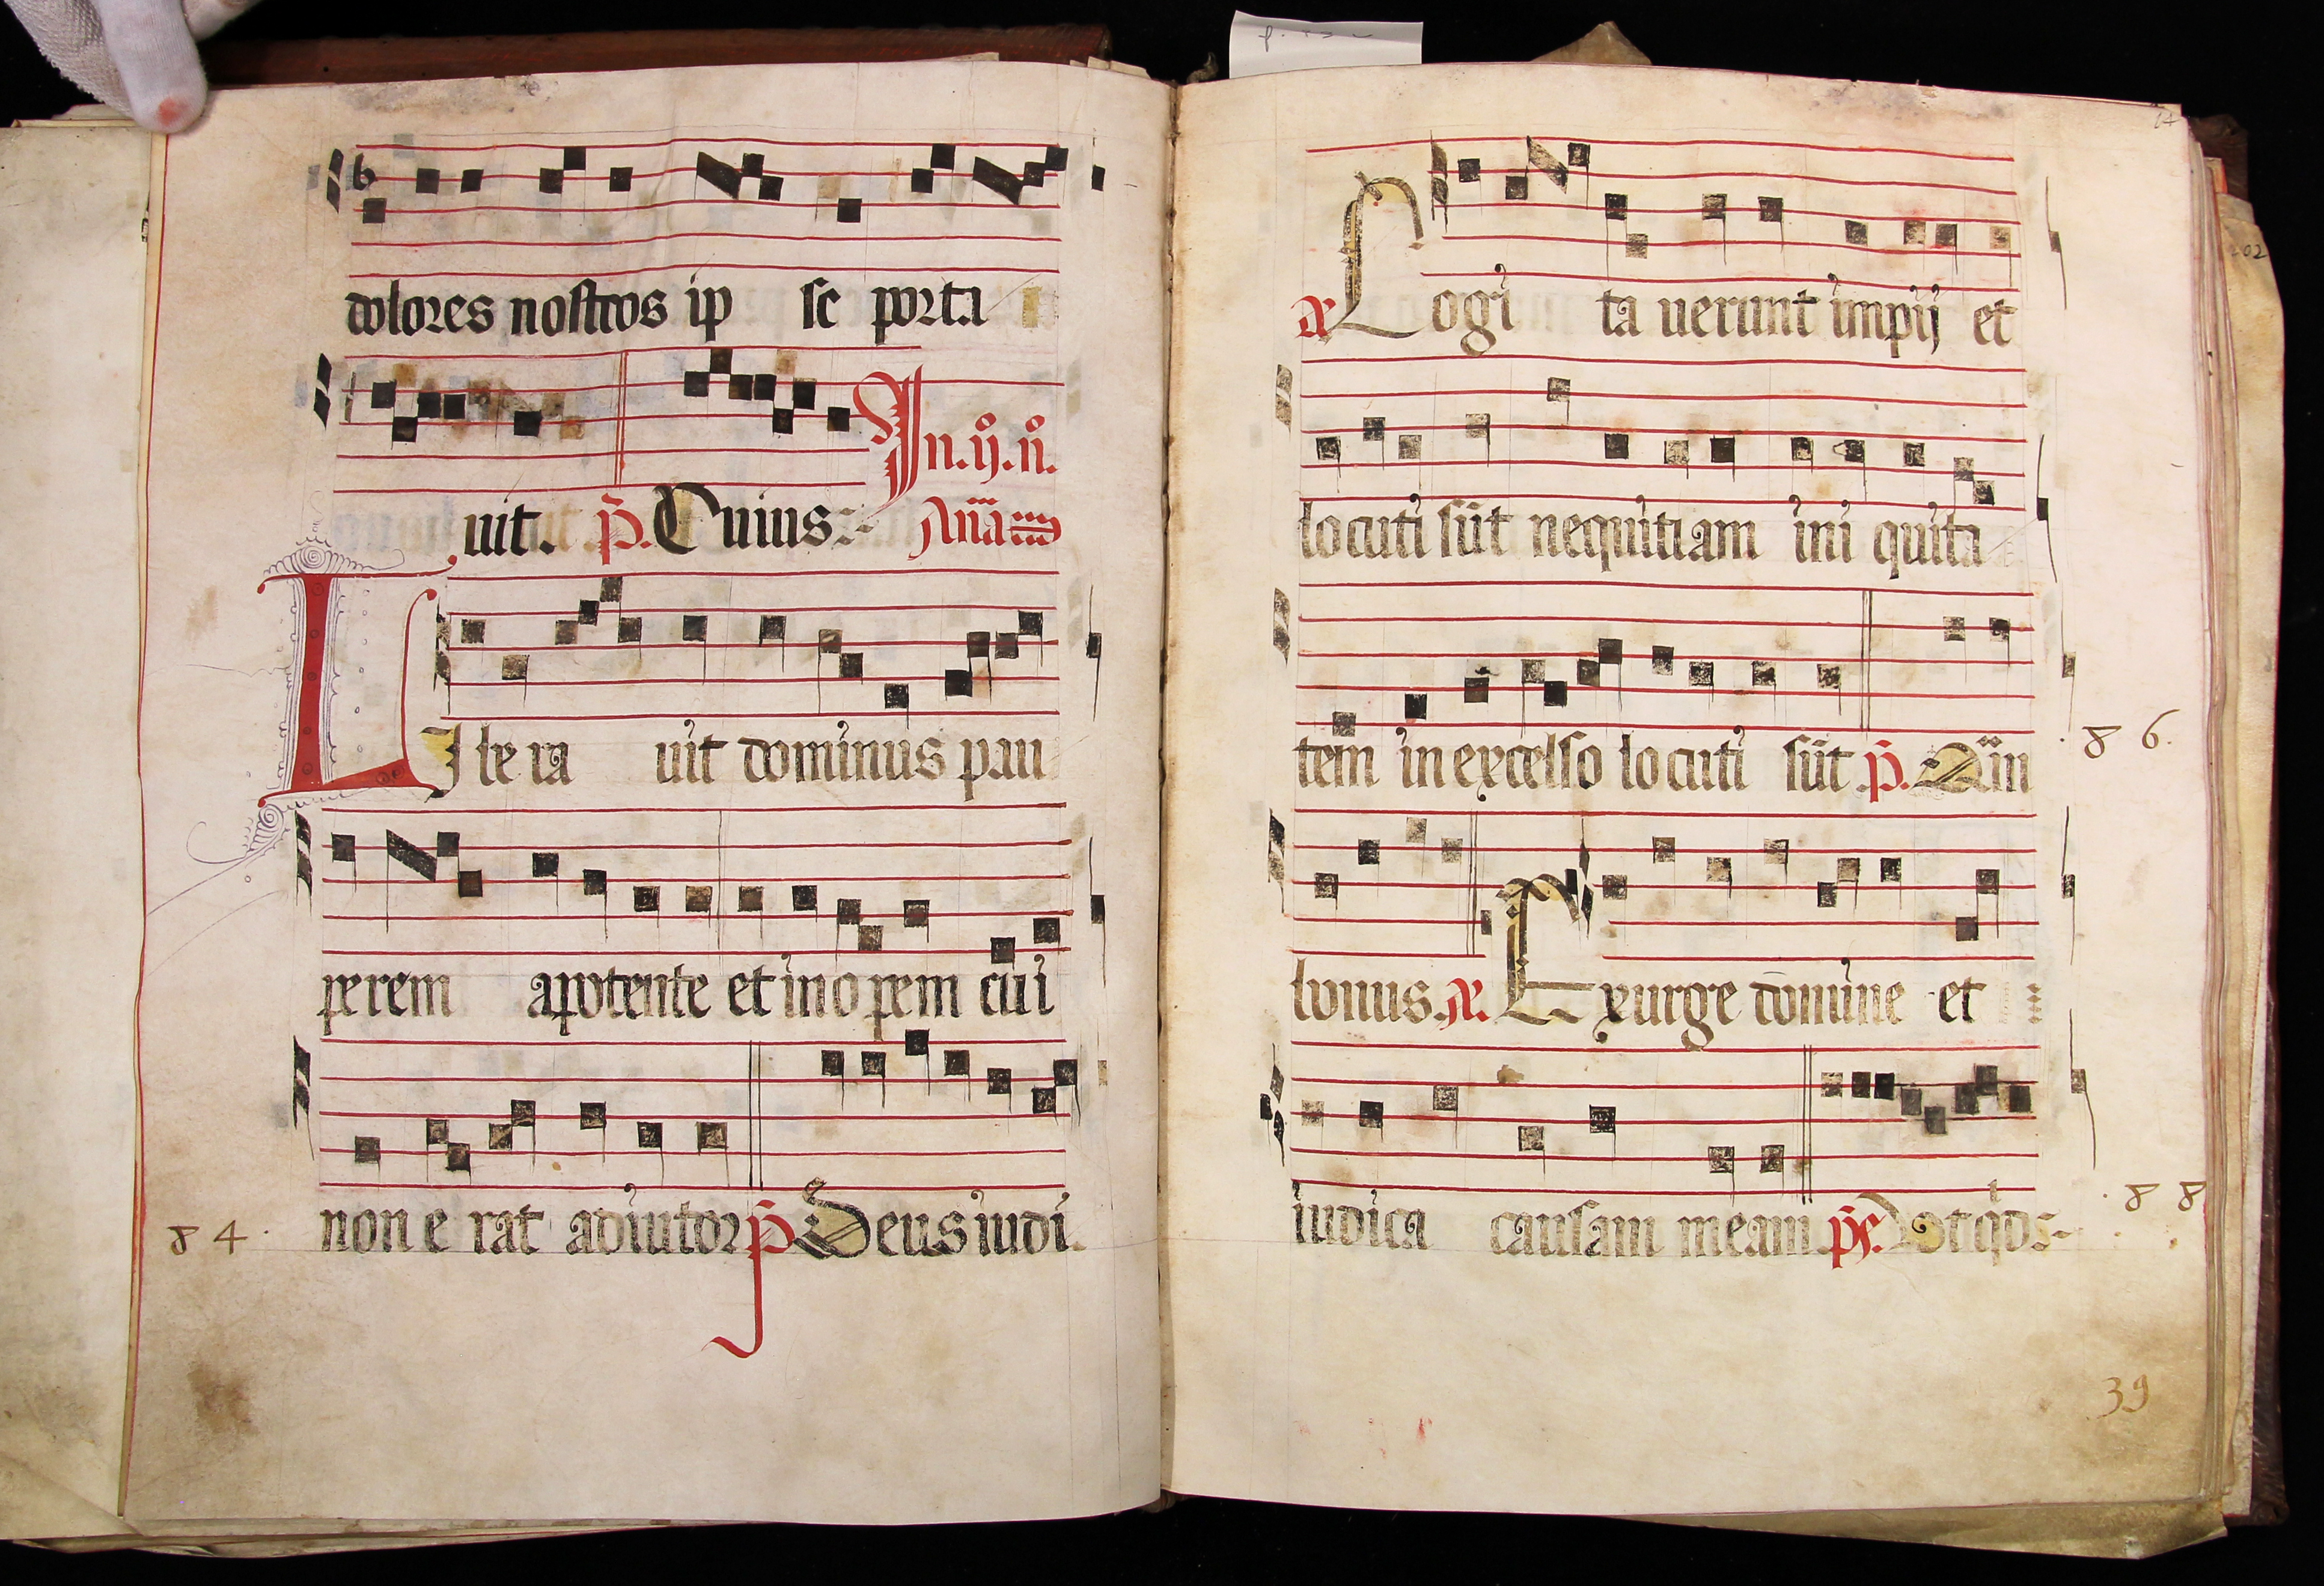 dolores nostros ip se porta
uit. p̄. Cuius
In. ij. n̊.
Ana
LIbe ra uit dominus pau
perem apotente et in o pem cui
non e rat adiutor p̄ Deus iudi.
84.
Cogi ta uerunt impij et
locuti sūt nequitiam ini quita
tem in excelso locuti sūt p̄. Qūi
86.
bonus. Exurge domine et
iudica causam meam. ps. Uot qd
.88
39